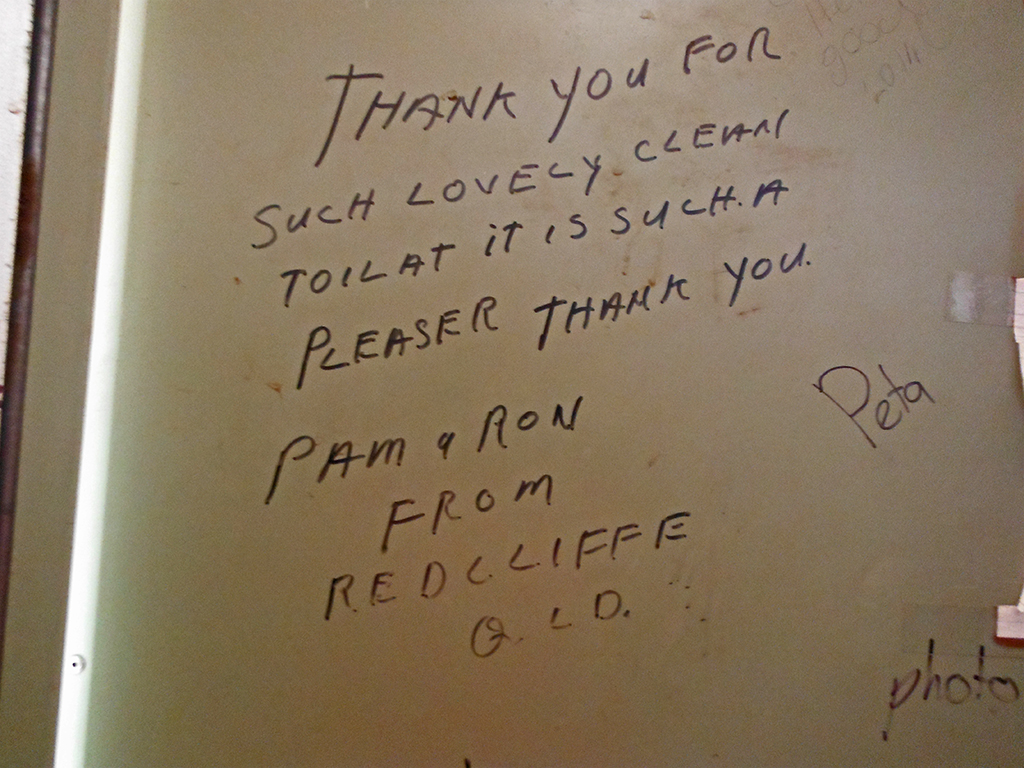 THANK YOU FOR
SUCH LOVELY CLEAN
TOILAT iT IS SUCH. A
PLEASER THANK YOU.
PAM & RON
FROM
REDCLIFFE
Q. L D.
Peta
photo